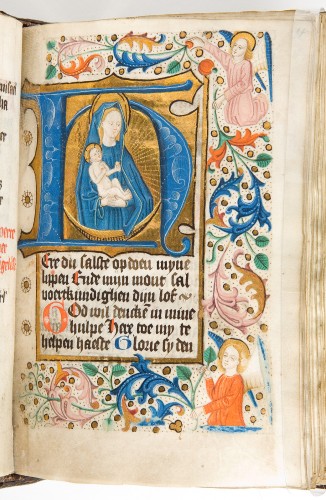 HEre du salste opdoen myne
lippen Ende mijn mont sal
voertkundighen dijn lof
God wil dencken in mine
hulpe Here toe my te
helpen haeste Glorie sy den